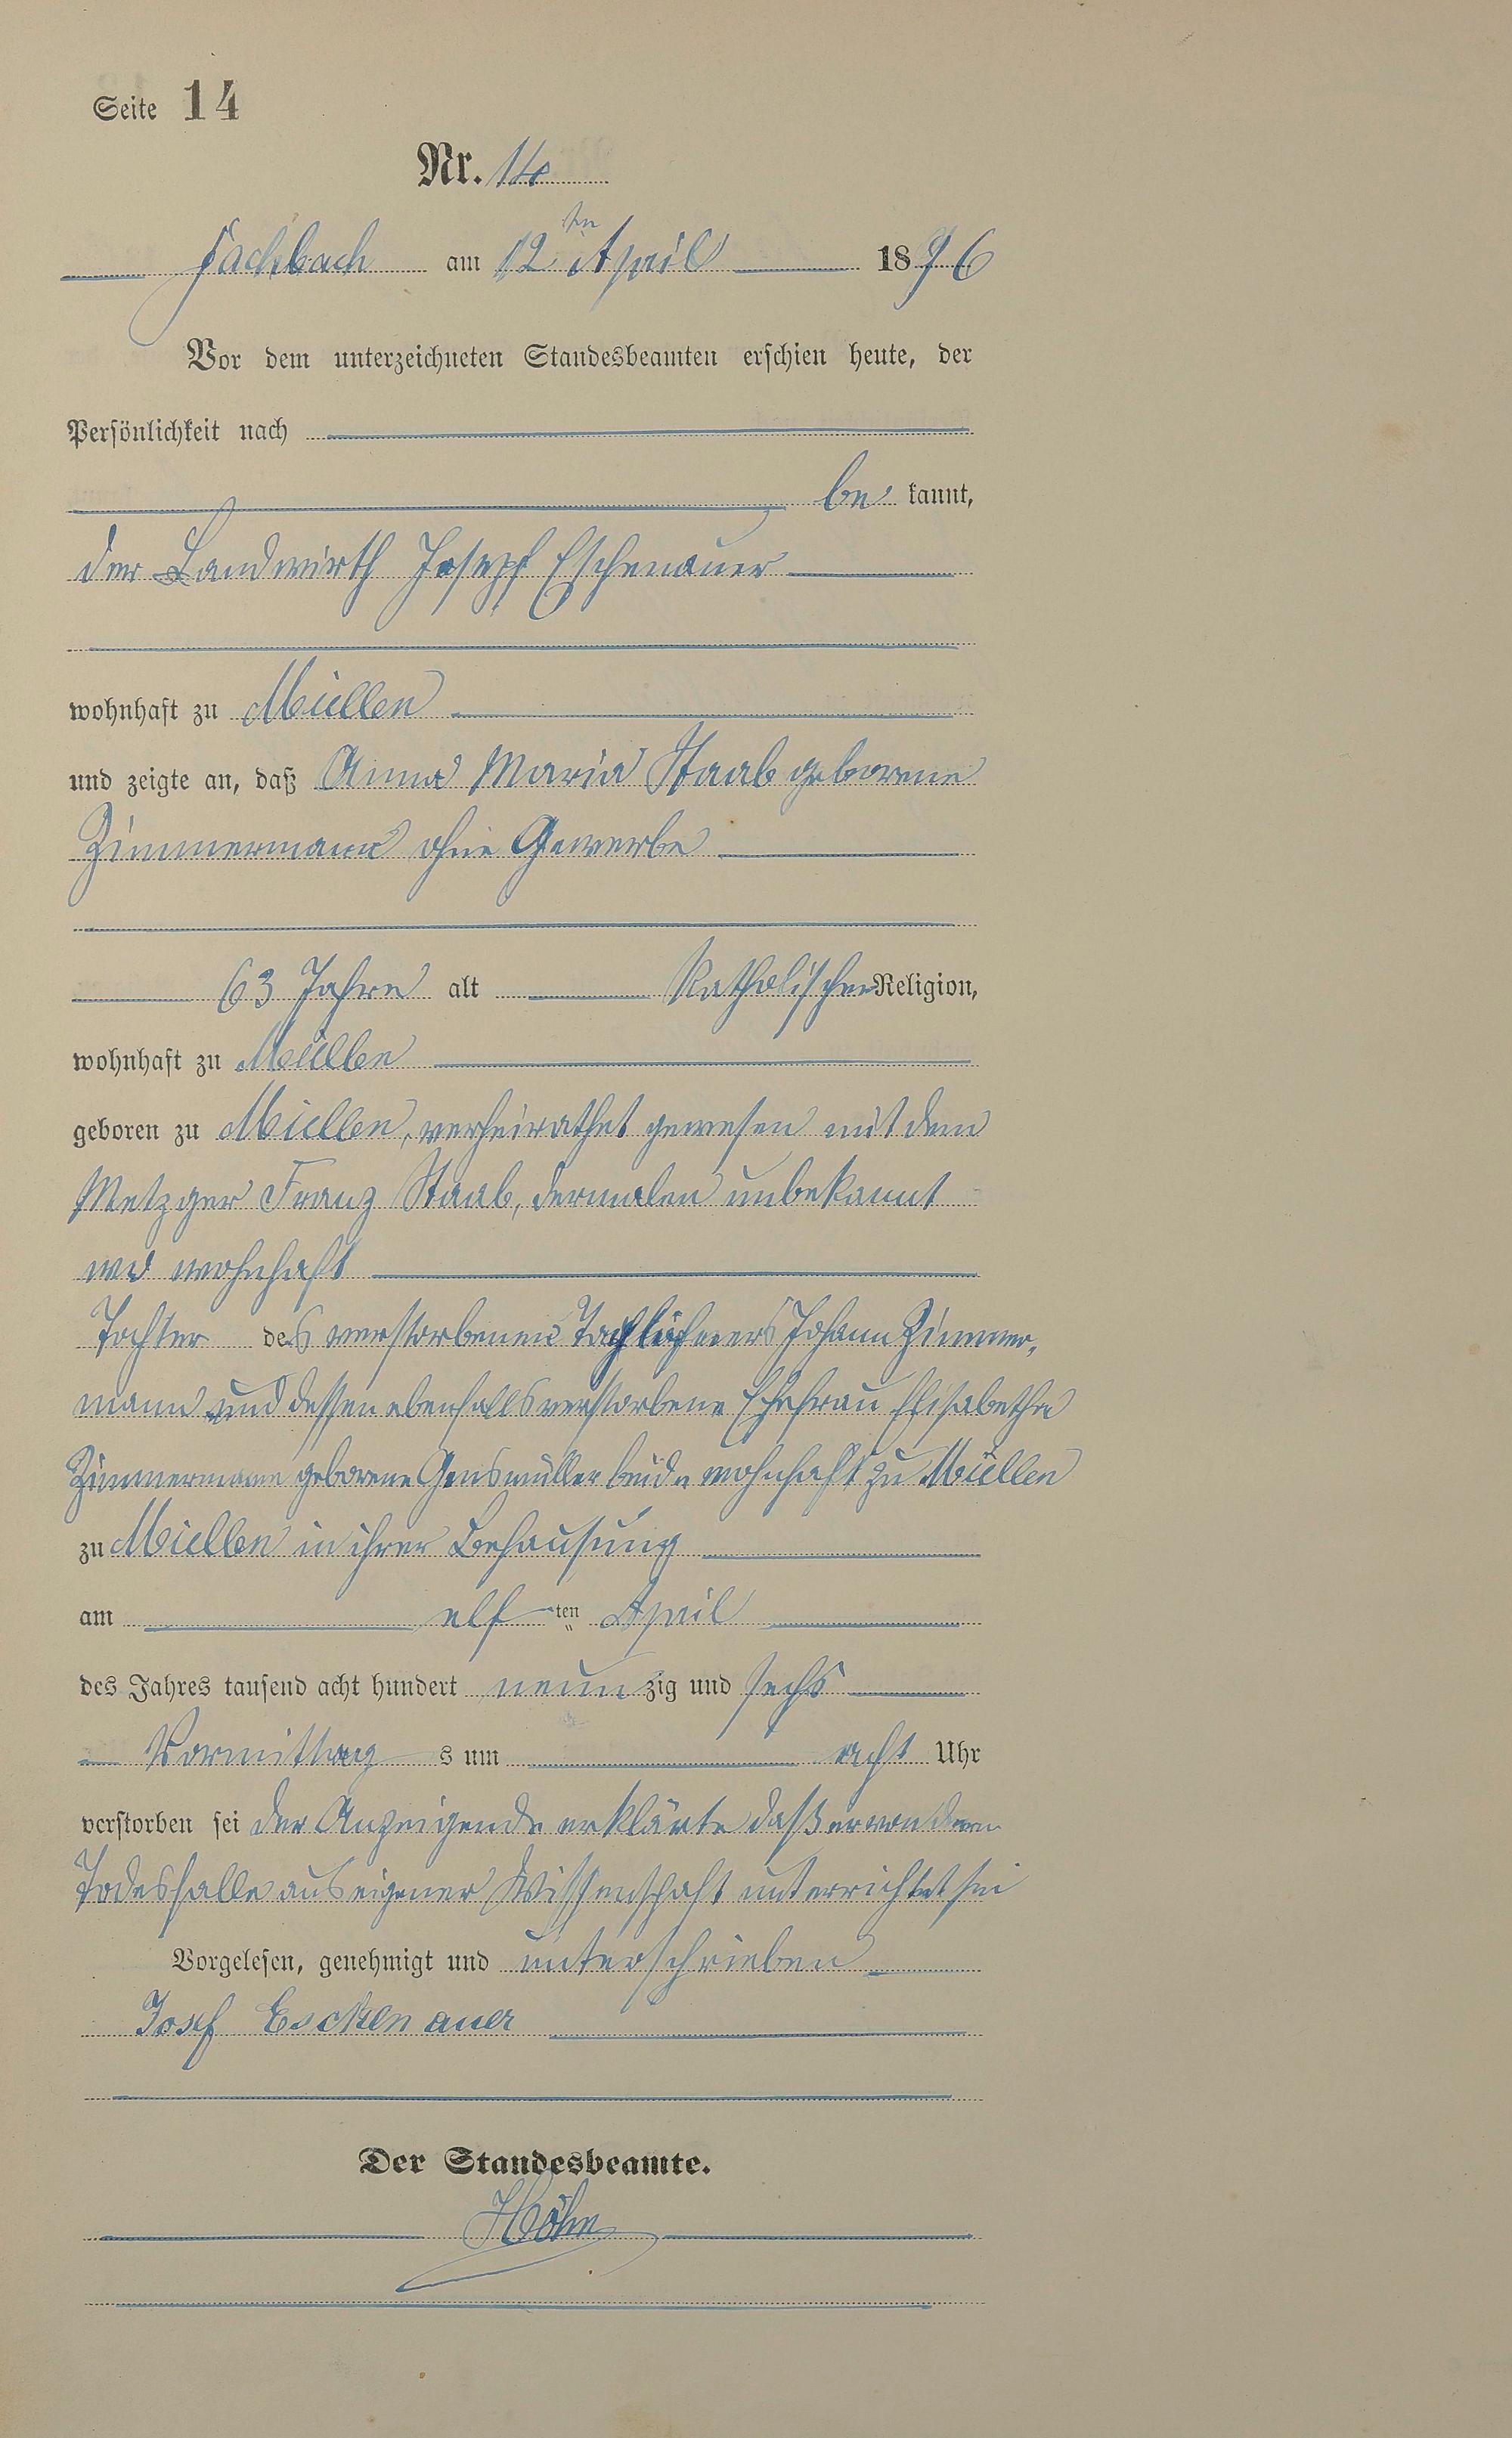 Seite 14
Nr. 14
Fachbach am 12ten April 1896
Vor dem unterzeichneten Standesbeamten erschien heute, der
Persönlichkeit nach
be kannt,
der Landwirth Joseph Eschenauer
wohnhaft zu Miellen
und zeigte an, daß Anna Maria Staab geborene
Zimmermann ohne Gewerbe
63 Jahre alt Katholischer Religion,
wohnhaft zu Miellen
geboren zu Miellen, verheirathet gewesen mit dem
Metzger Franz Staab, dermalen unbekannt
wo wohnhaft
Tochter des verstorbenen Taglöhners Johann Zimmer-
mann und dessen ebenfalls verstorbene Ehefrau Elisabetha
Zimmermann geborene Gensmüller beide wohnhaft zu Miellen
zu Miellen in ihrer Behausung
am elf ten April
des Jahres tausend acht hundert neun zig und sechs
Vormittag s um acht Uhr
verstorben sei der Anzeigende erklärte daß er von dem
Todesfalle aus eigener Wissenschaft unterrichtet sei
Vorgelesen, genehmigt und unterschrieben
Josef Eschenauer
Der Standesbeamte.
Höhn